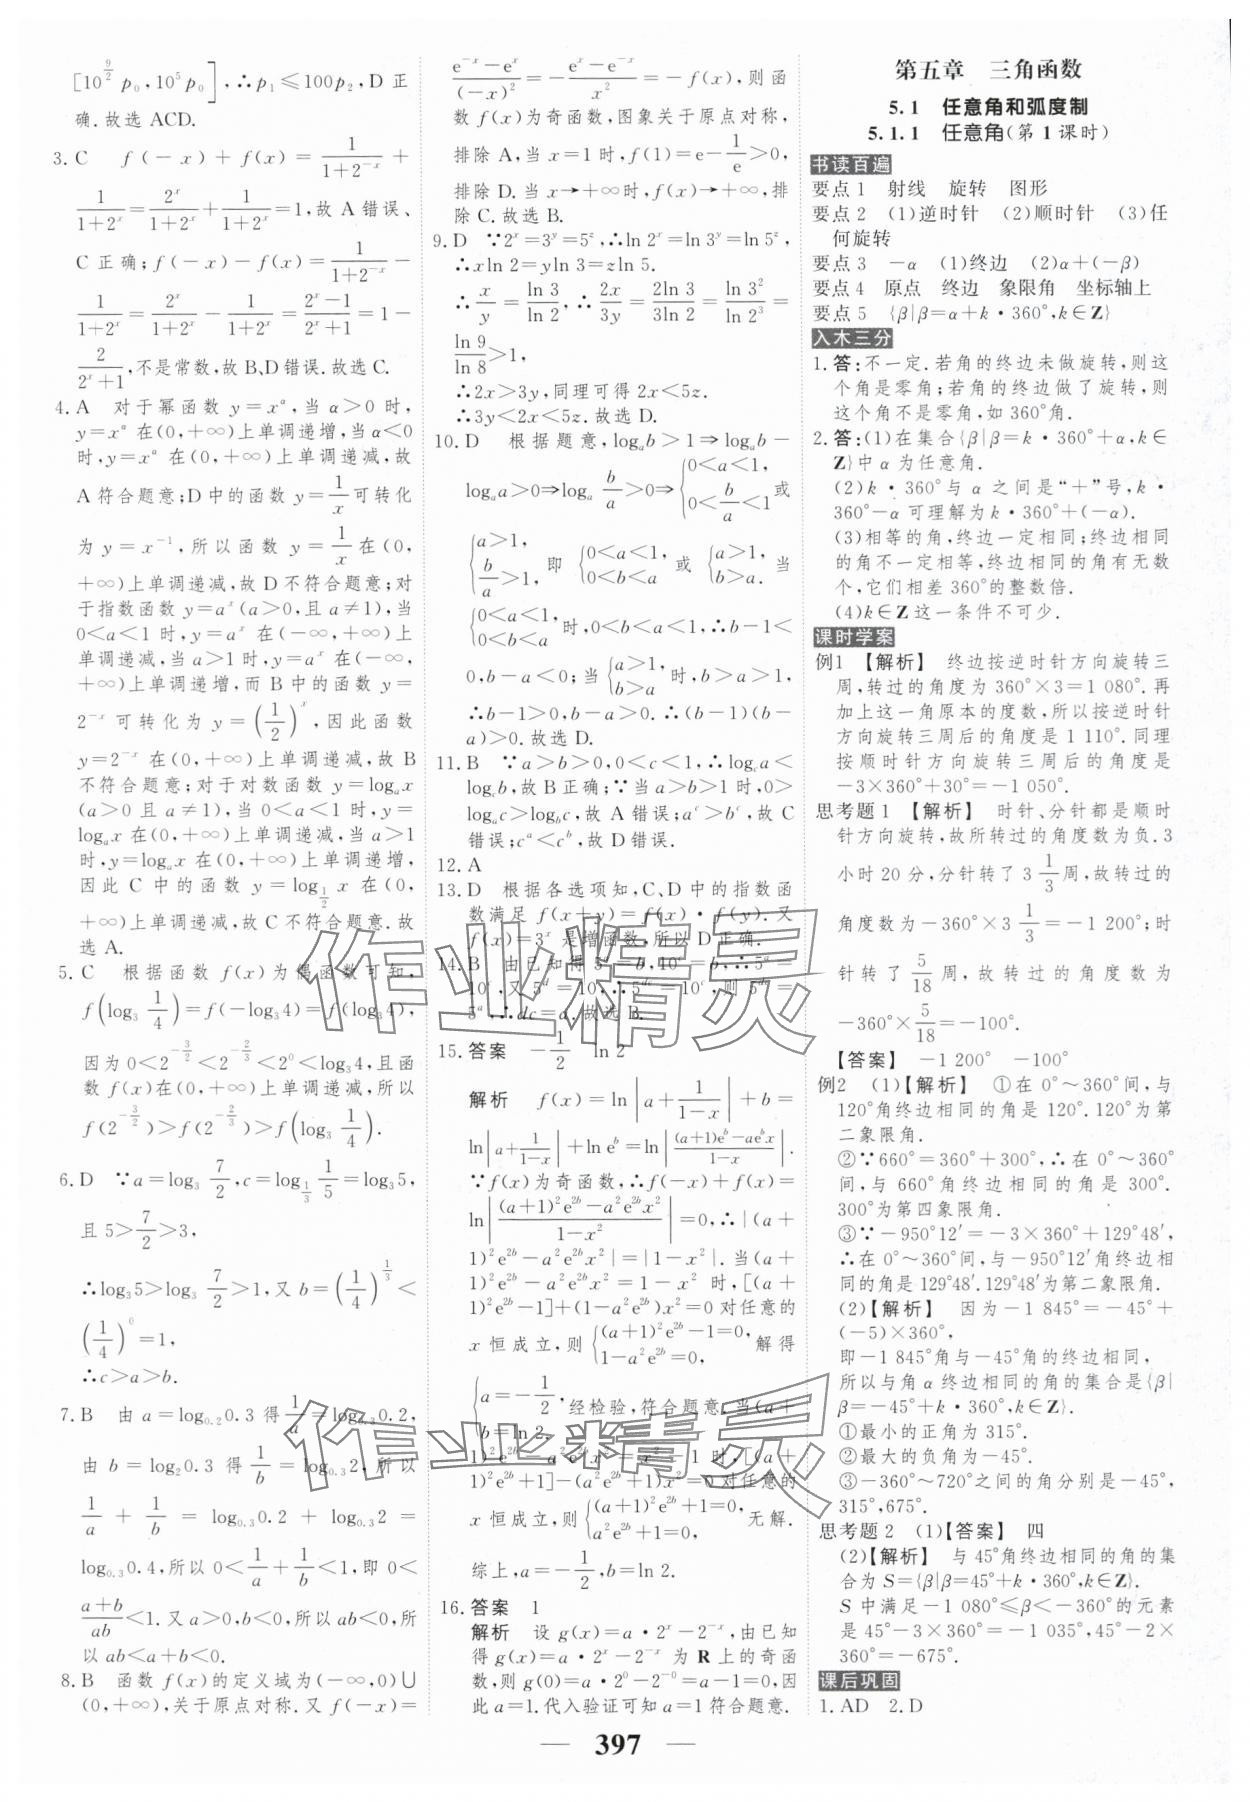 [10^{9/2} p₀,10⁵ p₀],∴p₁≤100p₂,D 正
确.故选 ACD.
3. C　f(-x)+f(x)=1/(1+2⁻ˣ)+
1/(1+2ˣ)=2ˣ/(1+2ˣ)+1/(1+2ˣ)=1,故 A 错误、
C 正确;f(-x)-f(x)=1/(1+2⁻ˣ)-
1/(1+2ˣ)=2ˣ/(1+2ˣ)-1/(1+2ˣ)=(2ˣ-1)/(2ˣ+1)=1-
2/(2ˣ+1),不是常数,故 B、D 错误.故选 C.
4. A　对于幂函数 y=x^α,当 α>0 时,
y=x^α 在(0,+∞)上单调递增,当 α<0
时,y=x^α 在(0,+∞)上单调递减,故
A 符合题意;D 中的函数 y=1/x 可转化
为 y=x⁻¹,所以函数 y=1/x 在(0,
+∞)上单调递减,故 D 不符合题意;对
于指数函数 y=aˣ(a>0,且 a≠1),当
0<a<1 时,y=aˣ 在(-∞,+∞)上
单调递减,当 a>1 时,y=aˣ 在(-∞,
+∞)上单调递增,而 B 中的函数 y=
2⁻ˣ 可转化为 y=(1/2)ˣ,因此函数
y=2⁻ˣ 在(0,+∞)上单调递减,故 B
不符合题意;对于对数函数 y=logₐx
(a>0 且 a≠1),当 0<a<1 时,y=
logₐx 在(0,+∞)上单调递减,当 a>1
时,y=logₐx 在(0,+∞)上单调递增,
因此 C 中的函数 y=log_{1/2} x 在(0,
+∞)上单调递减,故 C 不符合题意.故
选 A.
5. C　根据函数 f(x)为偶函数可知,
f(log₃ 1/4)=f(-log₃4)=f(log₃4),
因为 0<2^{-3/2}<2^{-2/3}<2⁰<log₃4,且函
数 f(x)在(0,+∞)上单调递减,所以
f(2^{-3/2})>f(2^{-2/3})>f(log₃ 1/4).
6. D　∵a=log₃ 7/2,c=log_{1/3} 1/5=log₃5,
且 5>7/2>3,
∴log₃5>log₃ 7/2>1,又 b=(1/4)^{1/3}<
(1/4)⁰=1,
∴c>a>b.
7. B　由 a=log₀.₂0.3 得 1/a=log₀.₃0.2,
由 b=log₂0.3 得 1/b=log₀.₃2,所以
1/a+1/b=log₀.₃0.2+log₀.₃2=
log₀.₃0.4,所以 0<1/a+1/b<1,即 0<
(a+b)/ab<1.又 a>0,b<0,所以 ab<0,所
以 ab<a+b<0.
8. B　函数 f(x)的定义域为(-∞,0)∪
(0,+∞),关于原点对称.又 f(-x)=
(e⁻ˣ-eˣ)/(-x)²=-(eˣ-e⁻ˣ)/x²=-f(x),则函
数 f(x)为奇函数,图象关于原点对称,
排除 A,当 x=1 时,f(1)=e-1/e>0,
排除 D.当 x→+∞时,f(x)→+∞,排
除 C.故选 B.
9. D　∵2ˣ=3ʸ=5ᶻ,∴ln 2ˣ=ln 3ʸ=ln 5ᶻ,
∴xln 2=yln 3=zln 5.
∴x/y=ln 3/ln 2,∴2x/3y=2ln 3/3ln 2=ln 3²/ln 2³=
ln 9/ln 8>1,
∴2x>3y,同理可得 2x<5z.
∴3y<2x<5z.故选 D.
10. D　根据题意,logₐb>1⇒logₐb-
logₐa>0⇒logₐ b/a>0⇒{0<a<1,0<b/a<1 或
{a>1,b/a>1,即{0<a<1,0<b<a 或{a>1,b>a.当
{0<a<1,0<b<a 时,0<b<a<1,∴b-1<
0,b-a<0;当{a>1,b>a 时,b>a>1,
∴b-1>0,b-a>0.∴(b-1)(b-
a)>0.故选 D.
11. B　∵a>b>0,0<c<1,∴log_c a<
log_c b,故 B 正确;∵当 a>b>1 时,0>
logₐc>log_b c,故 A 错误;aᶜ>bᶜ,故 C
错误;cᵃ<cᵇ,故 D 错误.
12. A
13. D　根据各选项知,C、D 中的指数函
数满足 f(x+y)=f(x)·f(y).又
f(x)=3ˣ 是增函数,所以 D 正确.
14. B　由已知得 5ᵃ=b,10ᶜ=b,∴5ᵃ=
10ᶜ,又 5ᵈ=10,∴5ᵈᶜ=10ᶜ,则 5ᵈᶜ=
5ᵃ,∴dc=a.故选 B.
15. 答案　-1/2　ln 2
解析　f(x)=ln|a+1/(1-x)|+b=
ln|a+1/(1-x)|+ln eᵇ=ln|((a+1)eᵇ-aeᵇx)/(1-x)|.
∵f(x)为奇函数,∴f(-x)+f(x)=
ln|((a+1)²e²ᵇ-a²e²ᵇx²)/(1-x²)|=0,∴|(a+
1)²e²ᵇ-a²e²ᵇx²|=|1-x²|.当(a+
1)²e²ᵇ-a²e²ᵇx²=1-x² 时,[(a+
1)²e²ᵇ-1]+(1-a²e²ᵇ)x²=0 对任意的
x 恒成立,则{(a+1)²e²ᵇ-1=0,1-a²e²ᵇ=0,解得
{a=-1/2,b=ln 2,经检验,符合题意.当(a+
1)²e²ᵇ-a²e²ᵇx²=x²-1 时,[(a+
1)²e²ᵇ+1]-(a²e²ᵇ+1)x²=0 对任意的
x 恒成立,则{(a+1)²e²ᵇ+1=0,a²e²ᵇ+1=0,无解.
综上,a=-1/2,b=ln 2.
16. 答案　1
解析　设 g(x)=a·2ˣ-2⁻ˣ,由已知
得 g(x)=a·2ˣ-2⁻ˣ 为 R 上的奇函
数,则 g(0)=a·2⁰-2⁻⁰=a-1=0,因
此 a=1.代入验证可知 a=1 符合题意.
第五章　三角函数
5.1　任意角和弧度制
5.1.1　任意角(第 1 课时)
书读百遍
要点 1　射线　旋转　图形
要点 2　(1)逆时针　(2)顺时针　(3)任
何旋转
要点 3　-α　(1)终边　(2)α+(-β)
要点 4　原点　终边　象限角　坐标轴上
要点 5　{β|β=α+k·360°,k∈Z}
入木三分
1. 答:不一定.若角的终边未做旋转,则这
个角是零角;若角的终边做了旋转,则
这个角不是零角,如 360°角.
2. 答:(1)在集合{β|β=k·360°+α,k∈
Z}中 α 为任意角.
(2)k·360°与 α 之间是“+”号,k·
360°-α 可理解为 k·360°+(-α).
(3)相等的角,终边一定相同;终边相同
的角不一定相等,终边相同的角有无数
个,它们相差 360°的整数倍.
(4)k∈Z 这一条件不可少.
课时学案
例1　【解析】　终边按逆时针方向旋转三
周,转过的角度为 360°×3=1 080°.再
加上这一角原本的度数,所以按逆时针
方向旋转三周后的角度是 1 110°.同理
按顺时针方向旋转三周后的角度是
-3×360°+30°=-1 050°.
思考题 1　【解析】　时针、分针都是顺时
针方向旋转,故所转过的角度数为负.3
小时 20 分,分针转了 3 1/3 周,故转过的
角度数为-360°×3 1/3=-1 200°;时
针转了 5/18 周,故转过的角度数为
-360°×5/18=-100°.
【答案】　-1 200°　-100°
例2　(1)【解析】　①在 0°～360°间,与
120°角终边相同的角是 120°.120°为第
二象限角.
②∵660°=360°+300°,∴在 0°～360°
间,与 660°角终边相同的角是 300°.
300°为第四象限角.
③∵-950°12′=-3×360°+129°48′,
∴在 0°～360°间,与-950°12′角终边相
同的角是 129°48′.129°48′为第二象限角.
(2)【解析】　因为-1 845°=-45°+
(-5)×360°,
即-1 845°角与-45°角的终边相同,
所以与角 α 终边相同的角的集合是{β|
β=-45°+k·360°,k∈Z}.
①最小的正角为 315°.
②最大的负角为-45°.
③-360°～720°之间的角分别是-45°,
315°,675°.
思考题 2　(1)【答案】　四
(2)【解析】　与 45°角终边相同的角的集
合为 S={β|β=45°+k·360°,k∈Z}.
S 中满足-1 080°≤β<-360°的元素
是 45°-3×360°=-1 035°,45°-2×
360°=-675°.
课后巩固
1. AD　2. D
397
作业精灵
作业精灵